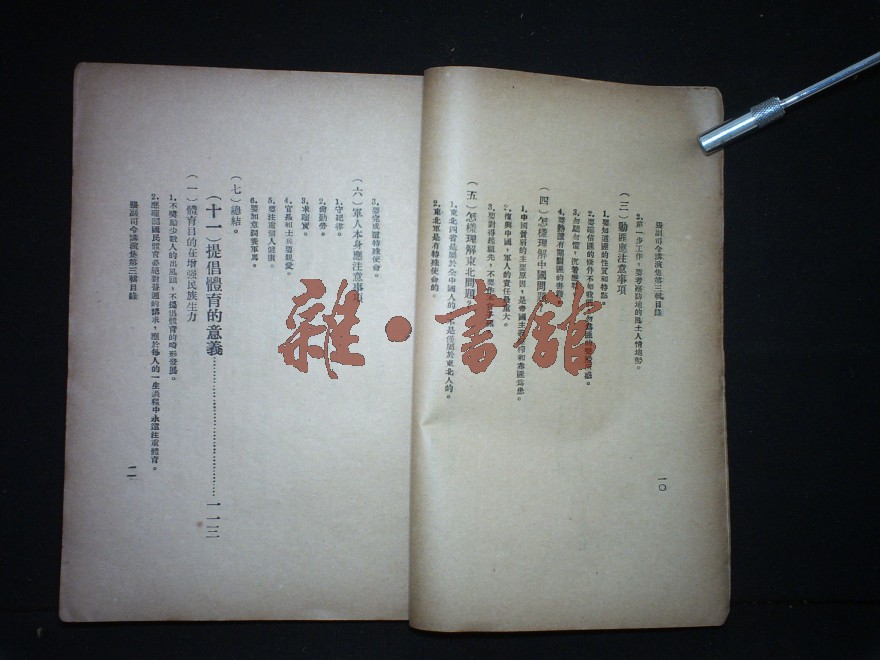 張副司令講演集第三輯目錄
2. 第一步工作，要考察防地的風土人情地勢。
（三）勦匪應注意事項
1. 要知道匪的性質和特點。
4. 熟讀有關勦匪的書籍
（四）怎樣理解中國問題
1. 中國貧弱的主要原因，是帝國主義
2. 復興中國，軍人的責任最重大。
3. 要對得起祖先，不要作
（五）怎樣理解東北問題
1. 東北四省是屬於全中國人的，不是僅屬於東北人的。
2. 東北軍是有特殊使命的。
一〇
3. 要完成這特殊使命。
（六）軍人本身應注意事項
1. 守紀律。
2. 尚勤勞。
3. 求確實。
4. 官長和士兵要親愛。
5. 要注重個人健康。
6. 要加意調養軍馬。
（七）總結。
（十一）提倡體育的意義…………一一三
（一）體育目的在增強民族生力
1. 不獎勵少數人的出風頭，不提倡體育的畸形發展。
2. 應確認國民體育必須對普遍的講求，應於每人的一生過程中永遠注重體育。
張副司令講演集第三輯目錄
一一
雜·書館